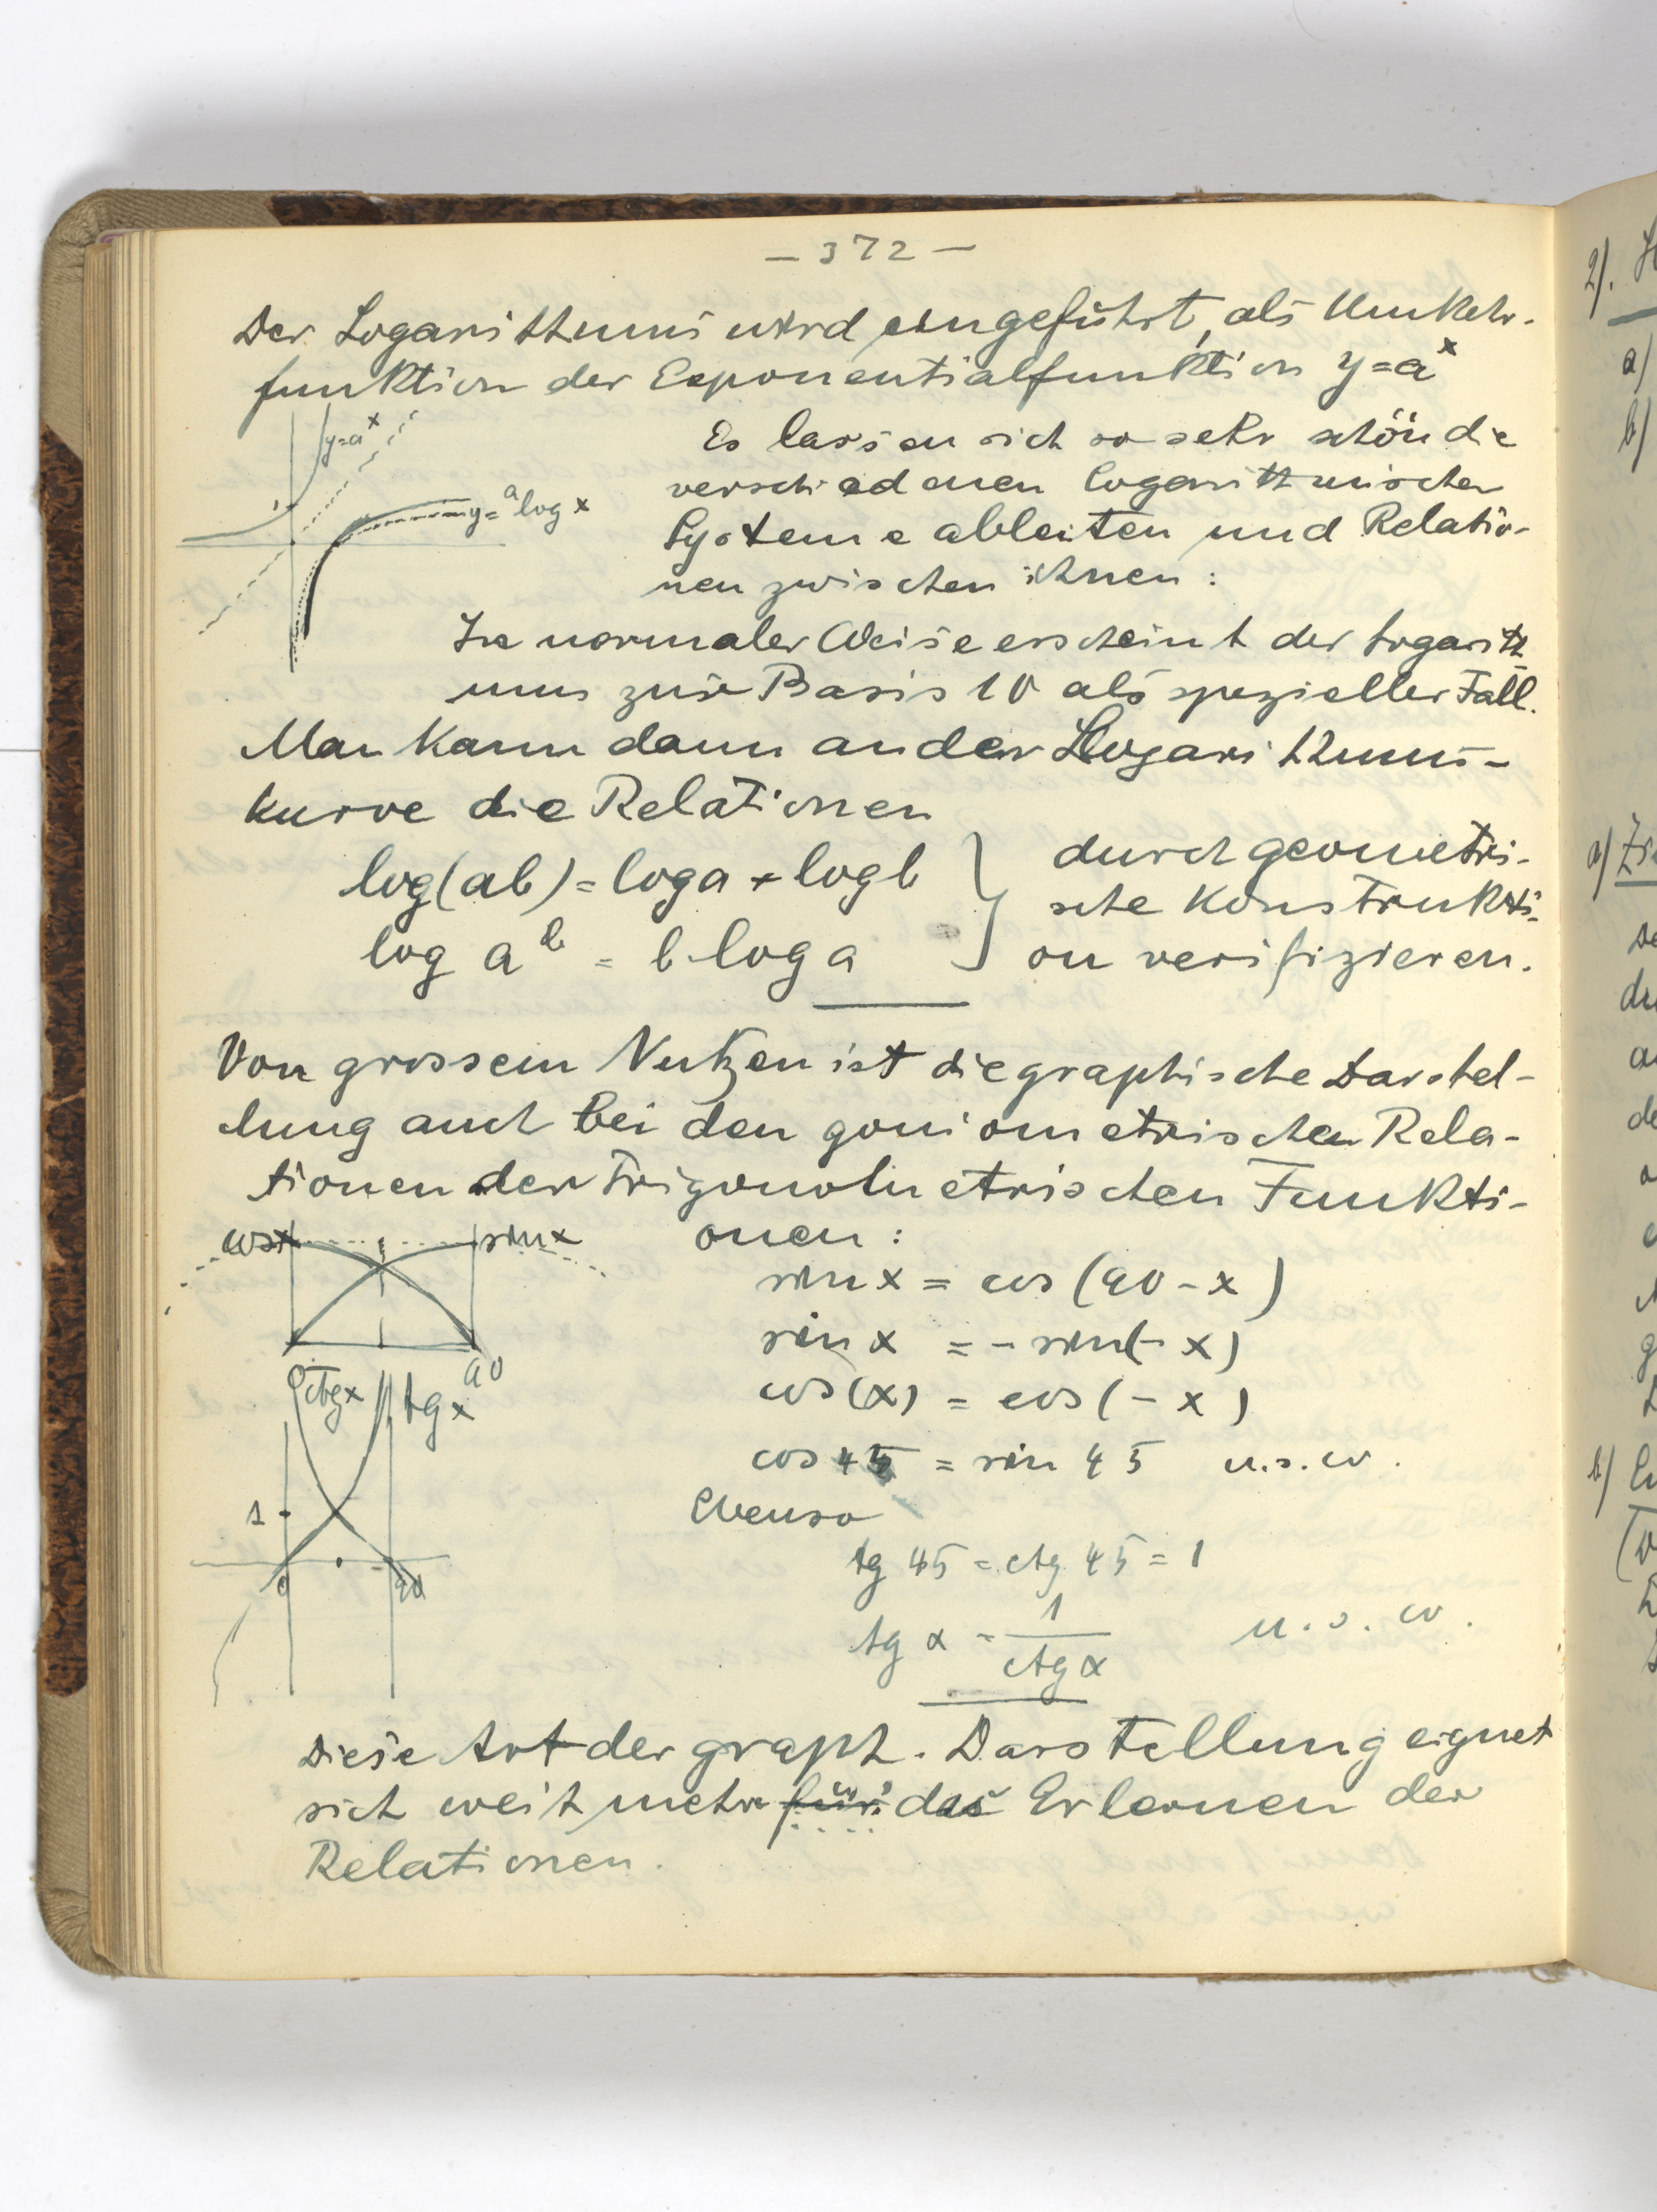 — 372 —
Der Logarithmus wird eingeführt, als Umkehr-
funktion der Exponentialfunktion y=aˣ
y=aˣ
1
y=ᵃlog x
Es lassen sich so sehr schön die
verschiedenen logarithmischen
Systeme ableiten und Relatio-
nen zwischen ihnen :
In normaler Weise erscheint der Logarith
mus zur Basis 10 als spezieller Fall.
Man kann dann an der Logarithmus-
kurve die Relationen
log(ab) = log a + log b
log aᵇ = b log a
durch geometri-
sche Konstrukti-
on verifizieren.
Von grossem Nutzen ist die graphische Darstel-
lung auch bei den goniometrischen Rela-
tionen der trigonometrischen Funkti-
onen :
cosx
sinx
0
90
sin x = cos (90 - x)
sin x = - sin(- x)
cos(x) = cos(- x)
cos 45 = sin 45 u.s.w.
ctgx
tgx
1
0
90
Ebenso
tg 45 = ctg 45 = 1
tg x = 1/ctg x u.s.w.
Diese Art der graph. Darstellung eignet
sich weit mehr für das Erlernen der
Relationen.
2).
a)
b)
a)
b)